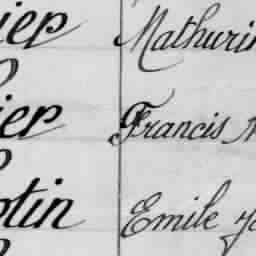 ier Mathurin
ier Francis
otin Emile